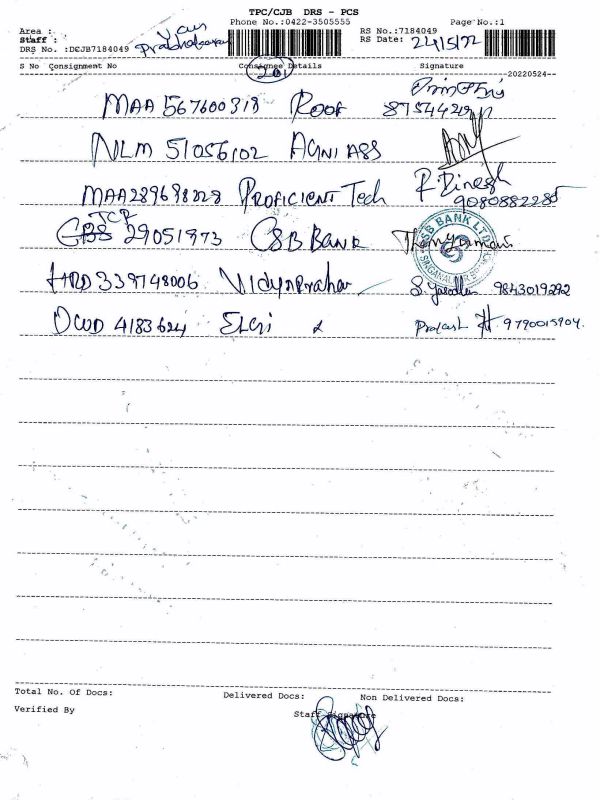 TPC/CJB DRS - PCS
Phone No.:0422-3505555 Page No.:1
Area : Van
Staff : Prabhakaran
DRS No. :DCJB7184049
RS No.:7184049
RS Date: 24/5/22
S No Consignment No Consignee Details Signature
(201)
--20220524--
MAA 567600318 Roof
NLM 51056102 AGNI ASS
MAA289698228 PROFICIENT Tech R. Dinesh
9080882285
TCR 29051973 CSB BANK
CSB BANK LTD
HRD 339748006 Vidynprahar 9843019292
DWD 4183624 Elgi Prakash 9790015904.
Total No. Of Docs: Delivered Docs: Non Delivered Docs:
Verified By Staff Signature